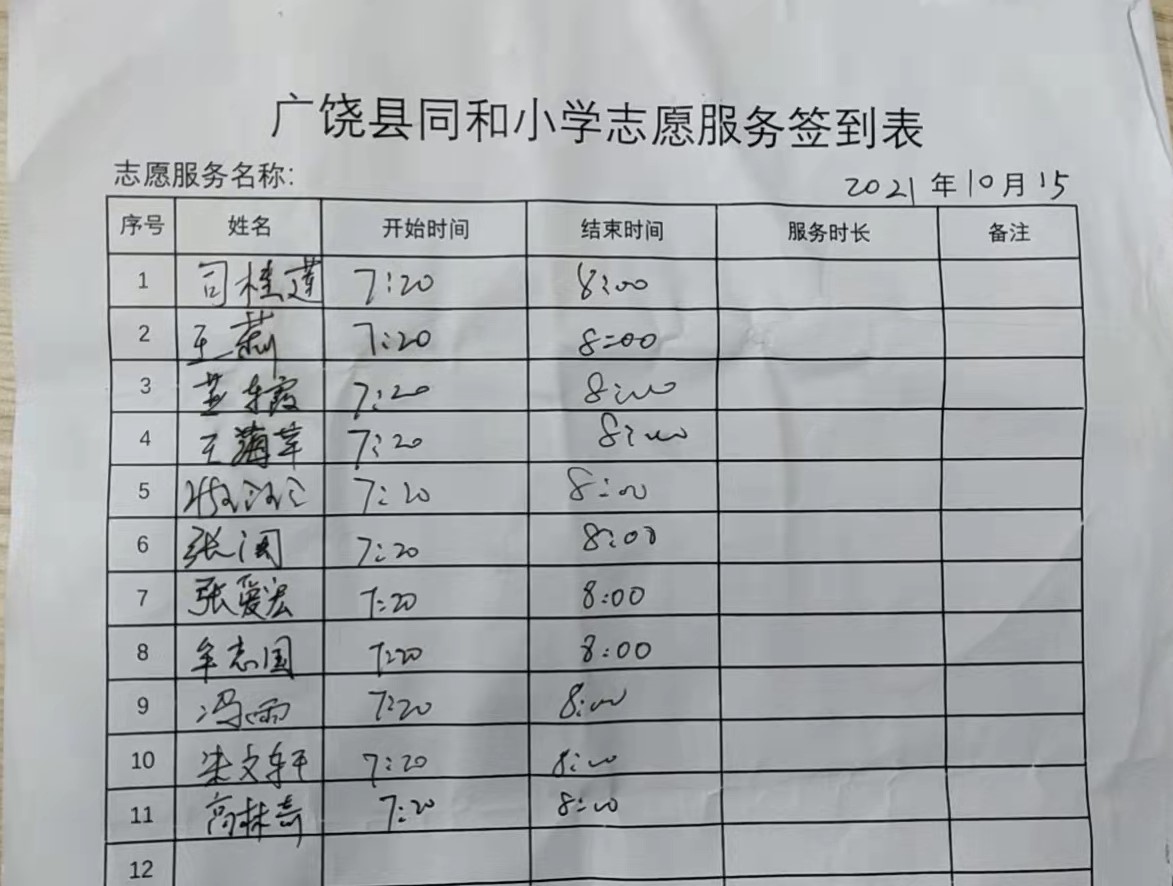 广饶县同和小学志愿服务签到表
志愿服务名称:
2021年10月15
序号 姓名 开始时间 结束时间 服务时长 备注
1 司桂莲 7:20 8:00
2 王莉 7:20 8:00
3 7:20 8:00
4 王海苹 7:20 8:00
5 7:20 8:00
6 张闯 7:20 8:00
7 张爱宏 7:20 8:00
8 牟志国 7:20 8:00
9 冯雨 7:20 8:00
10 宋文轩 7:20 8:00
11 高林奇 7:20 8:00
12